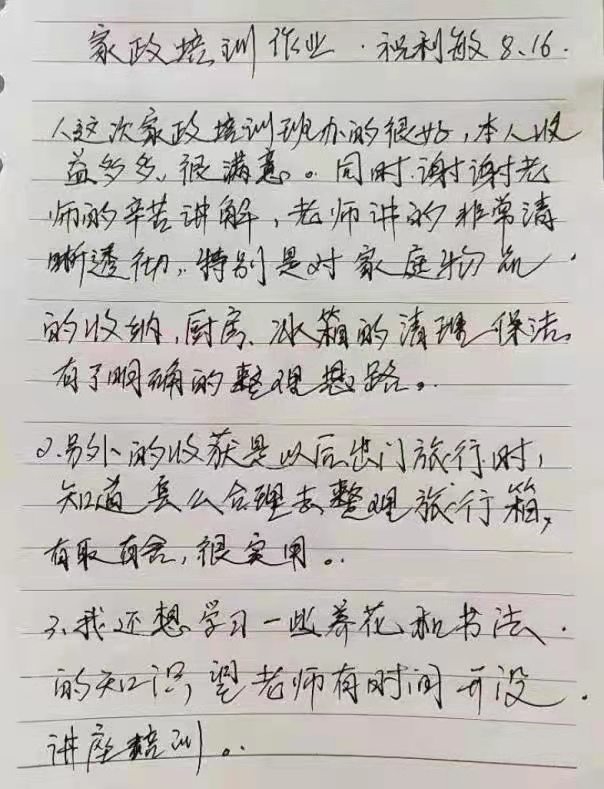 家政培训作业．祝利敏 8.16.
1、这次家政培训班办的很好，本人收
益多多，很满意。同时谢谢老
师的辛苦讲解，老师讲的非常清
晰透彻，特别是对家庭物品
的收纳，厨房、冰箱的清理保洁
有了明确的整理思路。
2.另外的收获是以后出门旅行时，
知道怎么合理去整理旅行箱，
有取有舍，很实用。
3、我还想学习一些养花和书法
的知识，望老师有时间开设
讲座培训。